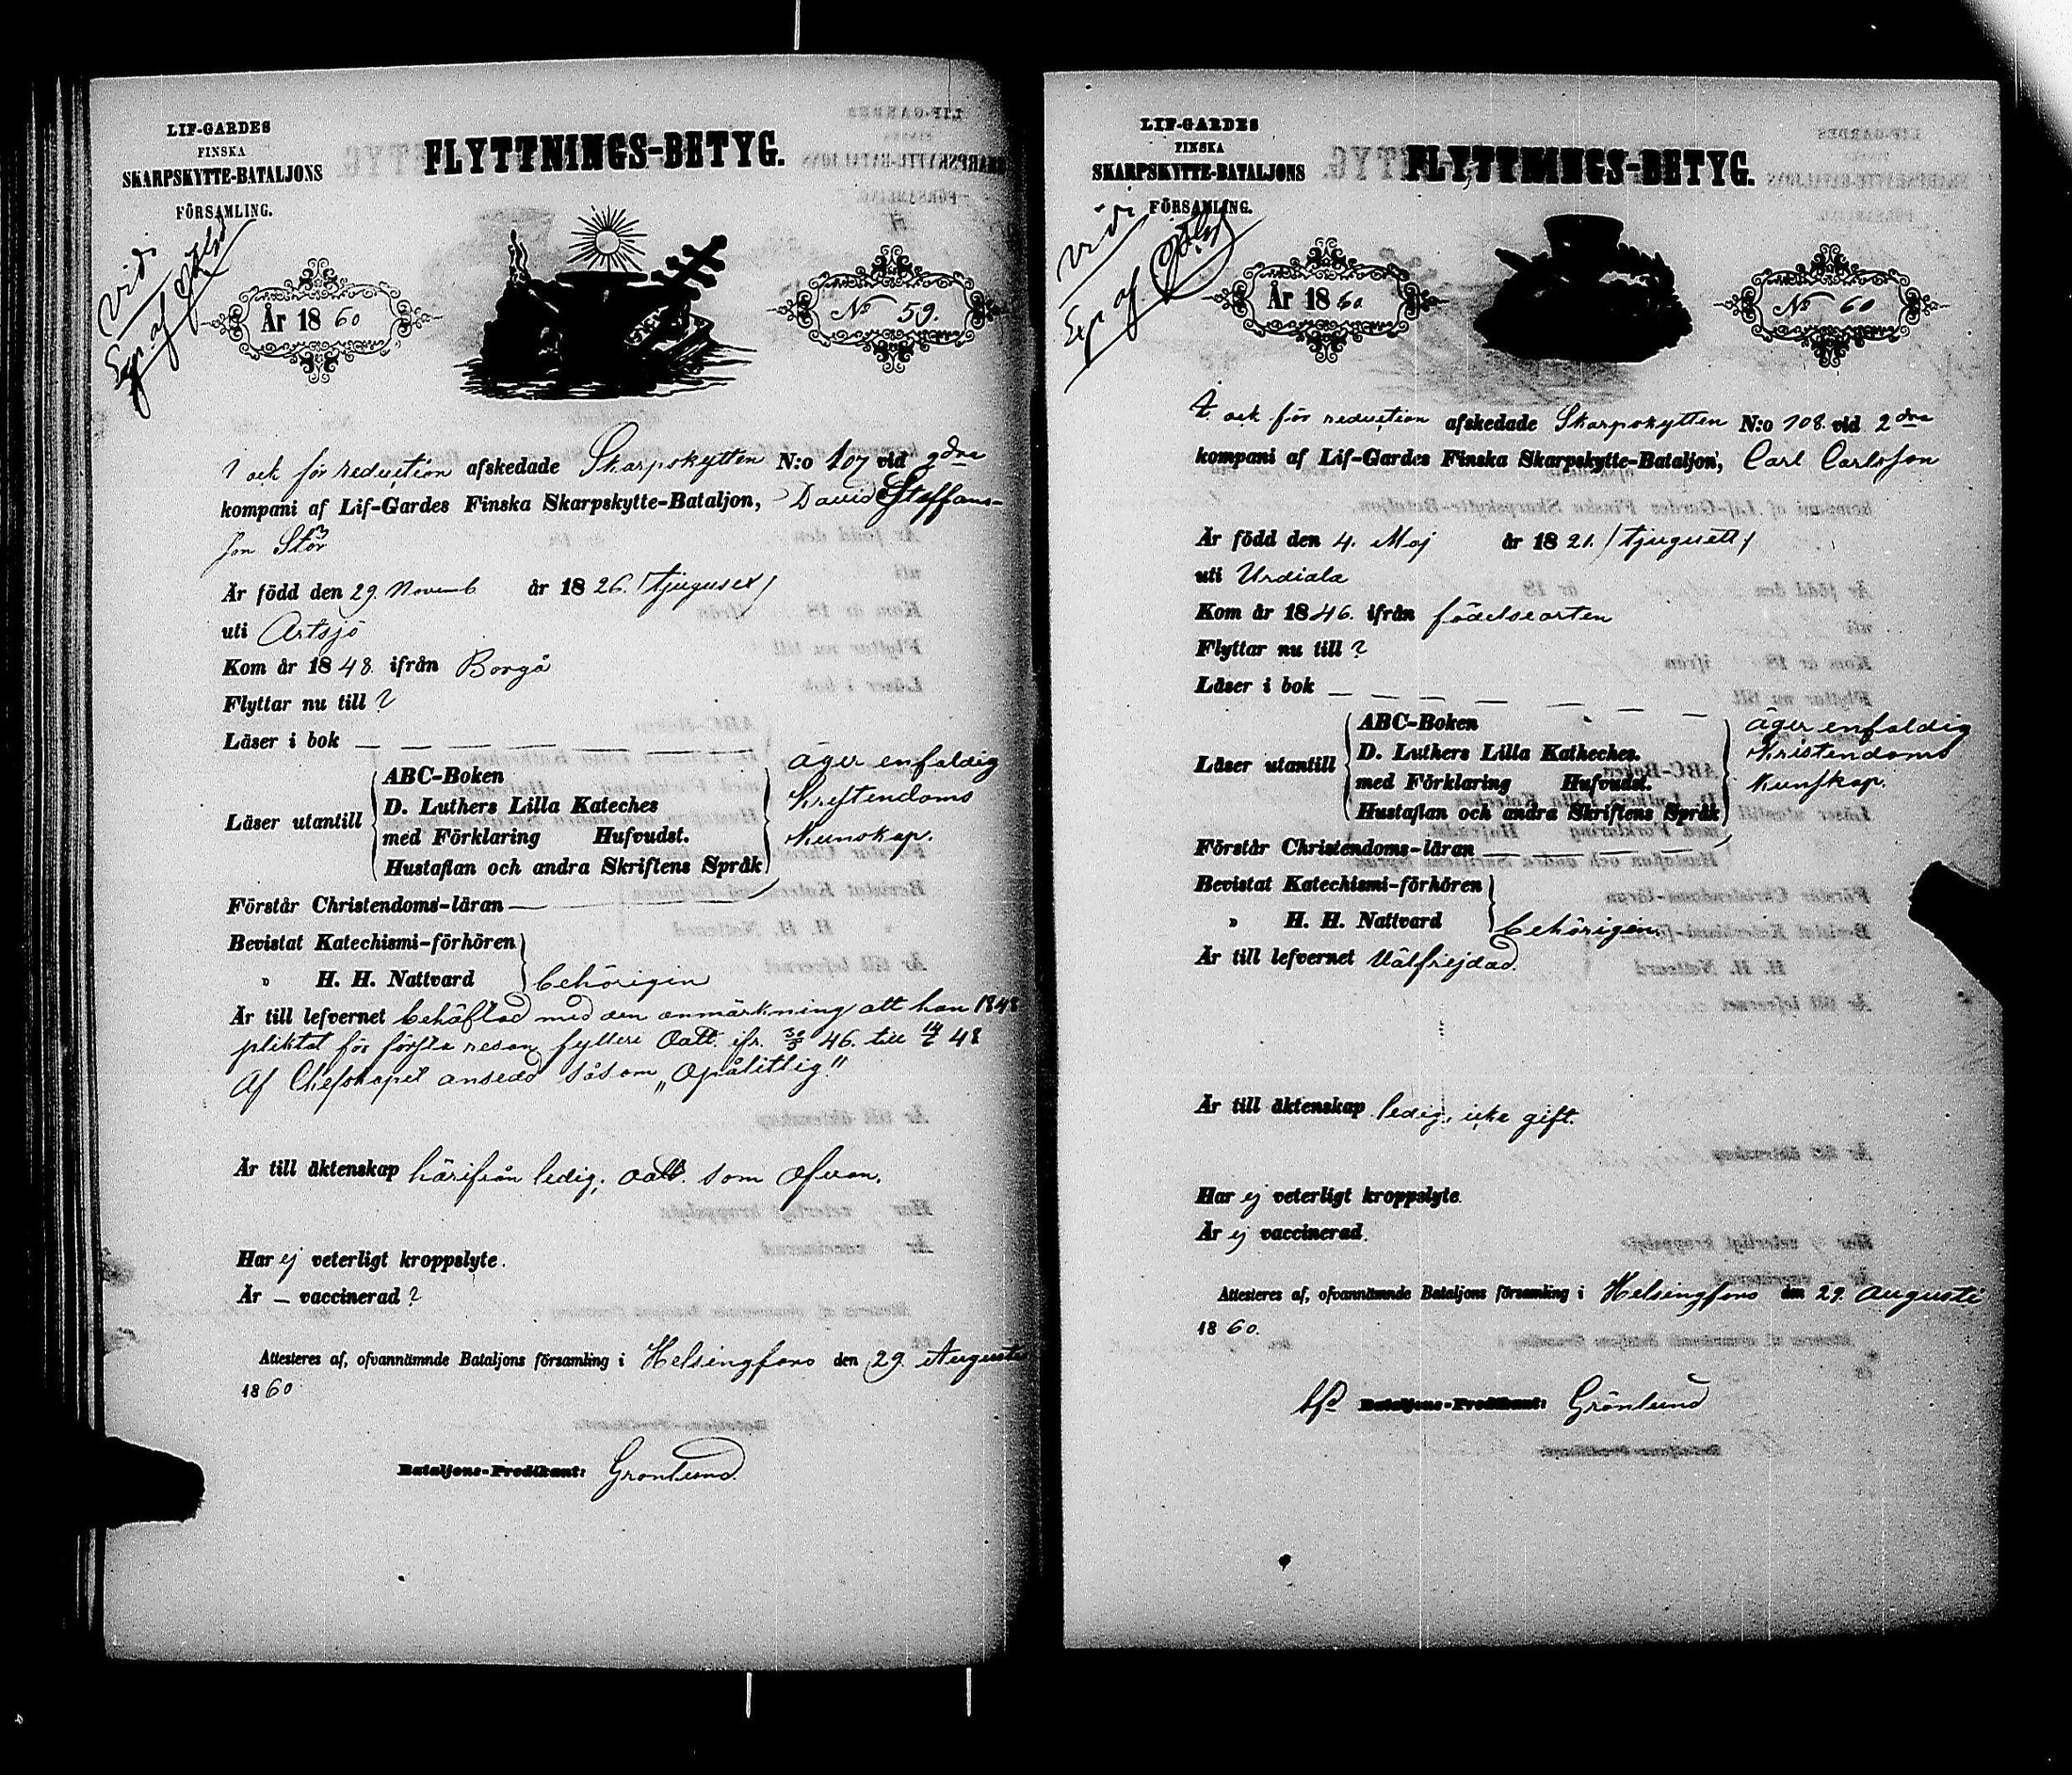 LIF-GARDES
FINSKA
SKARPSKYTTE-BATALJONS
FÖRSAMLING.
FLYTTNINGS-BETYG.
vidi
År 1860
No 59.
ock för reduction afskedade Skarpskytten N:o 107 vid 2dra
kompani af Lif-Gardes Finska Skarpskytte-Bataljon, David Staffans-
son Stör
Är född den 29. Novemb år 1826. /tjugusex/
uti Artsjö
Kom år 1848. ifrån Borgå
Flyttar nu till ?
Läser i bok — — — — — — —
Läser utantill
ABC-Boken
D. Luthers Lilla Kateches
med Förklaring Hufvudst.
Hustaflan och andra Skriftens Språk
äger enfaldig
Kristendoms
Kunskap.
Förstår Christendoms-läran —
Bevistat Katechismi-förhören
" H. H. Nattvard
behörigen
Är till lefvernet behäftad med den anmärkning att han 1848
pliktat för första resan fylleri Oatt. ifr. 46. till 48
Af Chefskapet ansedd såsom „Opålitlig"
Är till äktenskap härifrån ledig; oatt. som ofvan.
Har ej veterligt kroppslyte.
Är — vaccinerad ?
Attesteras af, ofvannämnde Bataljons församling i Helsingfors den 29. Augusti
1860
Bataljons-Predikant: Grönlund
LIF-GARDES
FINSKA
SKARPSKYTTE-BATALJONS
FÖRSAMLING.
FLYTTNINGS-BETYG.
vidi
År 1860
No 60
ock för reduction afskedade Skarpskytten N:o 108. vid 2dra
kompani af Lif-Gardes Finska Skarpskytte-Bataljon, Carl Carlsson
Är född den 4. Maj år 1821. /tjuguett/
uti Urdiala
Kom år 1846. ifrån födelseorten
Flyttar nu till ?
Läser i bok — — — — — — —
Läser utantill
ABC-Boken
D. Luthers Lilla Katheches.
med Förklaring Hufvudst.
Hustaflan och andra Skriftens Språk
äger enfaldig
Kristendoms
Kunskap.
Förstår Christendoms-läran — — — —
Bevistat Katechismi-förhören
" H. H. Nattvard
behörigen.
Är till lefvernet Välfrejdad.
Är till äktenskap ledig, icke gift.
Har ej veterligt kroppslyte.
Är ej vaccinerad.
Attesteras af, ofvannämnde Bataljons församling i Helsingfors den 29. Augusti
1860.
Bataljons-Predikant: Grönlund